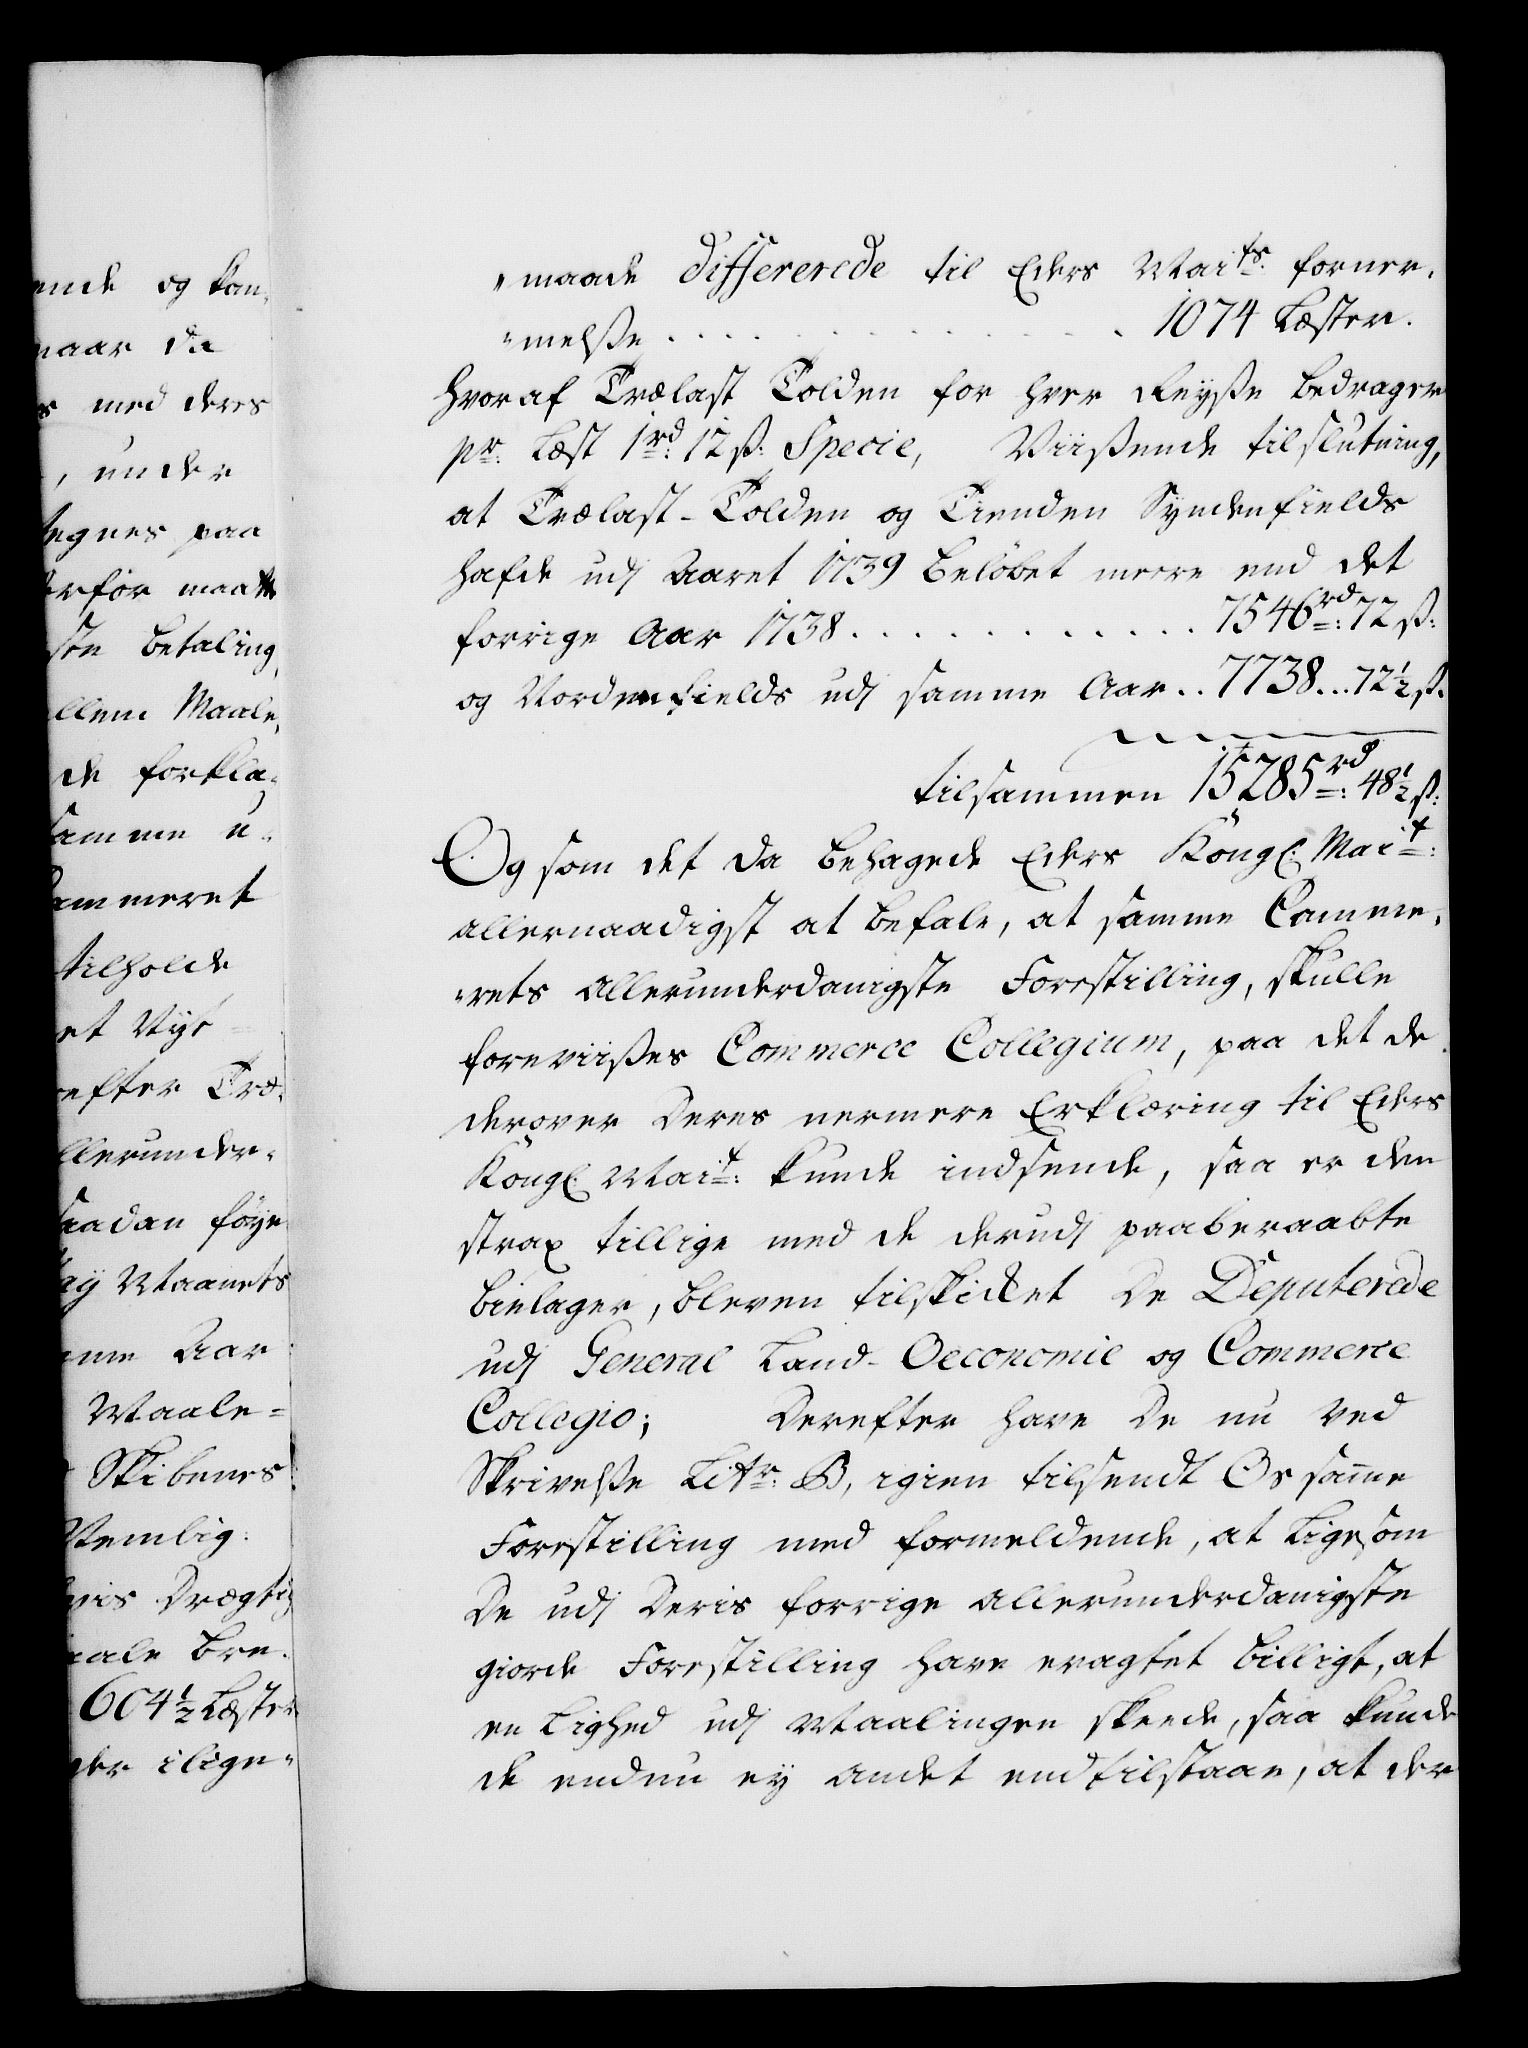 ende og kan-
naar da
s med deres
, under
tegnes paa
erfor maatte
ste betaling
llem Maale-
de forkla-
samme u-
ammeret
tilholde
et Nyt
efter Træ-
llerunder-
saadan föye
Maanets
mme Aar
Maale-
Skibenes
Nemlig:
vis Drægtig
aale bre-
604½ Læster
der i lige-
"maade differerede til Eders Maits: forner-
"melße . . . . . . . . . . . 1074 Læster.
hvoraf Trælast Tolden for hver Reyße bedrager
pr: Læst 1rd: 12 ß: Specie, Viißende tilslutning,
at Trælast-Tolden og Tienden Syndenfields
hafde udj Aaret 1739 beløbet meere end det
forrige Aar 1738 . . . . . . . . . . . . 7546rd: 72 ß:
og Nordenfields udj samme Aar . . 7738 . . . 72½ ß.
tilsammen 15285rd: 48½ ß:
Og som det da behagede Eders Köngl: Mait:
allernaadigst at befale, at samme Camme-
"rets allerunderdanigste Forestilling, skulle
foreviißes Commerce Collegium, paa det de
derover deres nermere Erklæring til Eders
Köngl: Mait: kunde indsende, saa er den
strax tillige med de derudj paaberaabte
bielager, bleven tilskicket De Deputerede
udj General Land-Oeconomie og Commerce
Collegio; Derefter have De nu ved
Skrivelße Litr: B, igien tilsendt Os samme
Forestilling med formeldende, at ligesom
De udj Deris forrige allerunderdanigste
giorde Forestilling have eragtet billigt, at
en Lighed udj Maalingen skeede, saa kunde
de endnu ey andet end tilstaae, at der